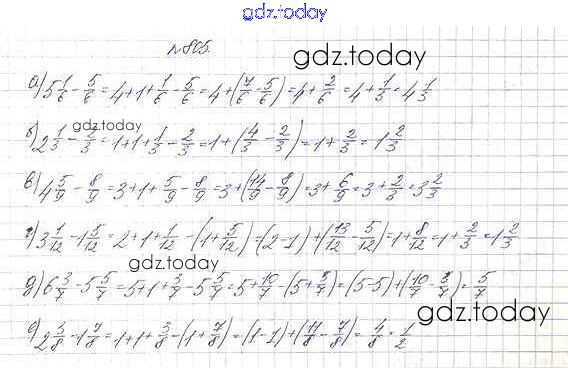 gdz.today
№805.
gdz.today
а) 5 1/6 - 5/6 = 4+1+1/6 - 5/6 = 4+(7/6 - 5/6) = 4+2/6 = 4+1/3 = 4 1/3
gdz.today
б) 2 1/3 - 2/3 = 1+1+1/3 - 2/3 = 1+(4/3 - 2/3) = 1+2/3 = 1 2/3
в) 4 5/9 - 8/9 = 3+1+5/9 - 8/9 = 3+(14/9 - 8/9) = 3+6/9 = 3+2/3 = 3 2/3
г) 3 1/12 - 1 5/12 = 2+1+1/12 - (1+5/12) = (2-1)+(13/12 - 5/12) = 1+8/12 = 1+2/3 = 1 2/3
gdz.today
д) 6 3/7 - 5 5/7 = 5+1+3/7 - 5 5/7 = 5+10/7 - (5+5/7) = (5-5)+(10/7 - 5/7) = 5/7
gdz.today
е) 2 3/8 - 1 7/8 = 1+1+3/8 - (1+7/8) = (1-1)+(11/8 - 7/8) = 4/8 = 1/2